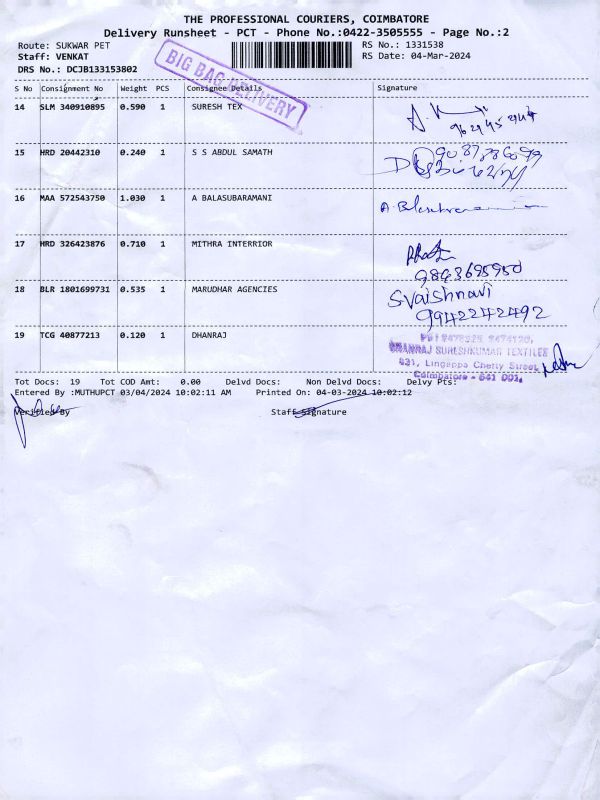 THE PROFESSIONAL COURIERS, COIMBATORE
Delivery Runsheet - PCT - Phone No.:0422-3505555 - Page No.:2
Route: SUKWAR PET
RS No.: 1331538
Staff: VENKAT
RS Date: 04-Mar-2024
DRS No.: DCJB133153802
BIG BAG DELIVERY
S No Consignment No Weight PCS Consignee Details Signature
14 SLM 340910895 0.590 1 SURESH TEX
15 HRD 20442310 0.240 1 S S ABDUL SAMATH
16 MAA 572543750 1.030 1 A BALASUBARAMANI
17 HRD 326423876 0.710 1 MITHRA INTERRIOR
9863695950
18 BLR 1801699731 0.535 1 MARUDHAR AGENCIES S.Vaishnavi
9942242492
19 TCG 40877213 0.120 1 DHANRAJ
DHANRAJ SURESHKUMAR TEXTILES
821, Lingappa Chetty Street,
Coimbatore - 641 001.
Tot Docs: 19 Tot COD Amt: 0.00 Delvd Docs: Non Delvd Docs: Delvy Pts:
Entered By :MUTHUPCT 03/04/2024 10:02:11 AM Printed On: 04-03-2024 10:02:12
Verified By Staff Signature